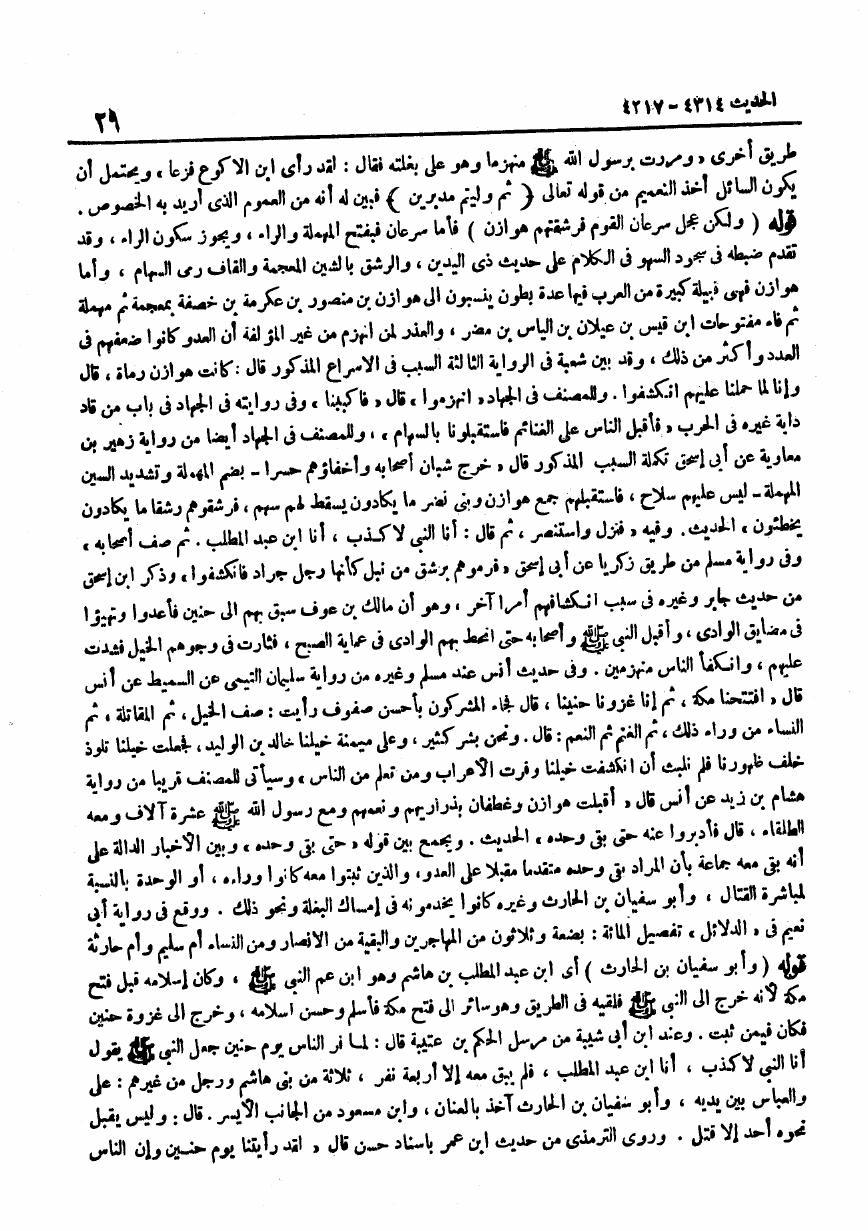 الحديث ٤٣١٤ - ٤٣١٧
٢٩
طريق أخرى « ومررت برسول الله ﷺ منهزما وهو على بغلته فقال : لقد رأى ابن الاكوع فزعا ، ويحتمل أن
يكون السائل أخذ التعميم من قوله تعالى ﴿ ثم وليتم مدبرين ﴾ فبين له أنه من العموم الذى أريد به الخصوص .
قوله ( ولكن عجل سرعان القوم فرشقتهم هوازن ) فأما سرعان فبفتح المهملة والراء ، ويجوز سكون الراء ، وقد
تقدم ضبطه فى سجود السهو فى الكلام على حديث ذى اليدين ، والرشق بالشين المعجمة والقاف رمى السهام ، وأما
هوازن فهى قبيلة كبيرة من العرب فيها عدة بطون ينسبون الى هوازن بن منصور بن عكرمة بن خصفة بمعجمة ثم مهملة
ثم فاء مفتوحات ابن قيس بن عيلان بن الياس بن مضر ، والعذر لمن انهزم من غير المؤلفة أن العدو كانوا ضعفهم فى
العدد وأكثر من ذلك ، وقد بين شعبة فى الرواية الثالثة السبب فى الاسراع المذكور قال : كانت هوازن رماة ، قال
وإنا لما حملنا عليهم انكشفوا . وللمصنف فى الجهاد « انهزموا ، قال « فاكببنا ، وفى روايته فى الجهاد فى باب من قاد
دابة غيره فى الحرب « فأقبل الناس على الغنائم فاستقبلونا بالسهام ، ، وللمصنف فى الجهاد أيضا من رواية زهير بن
معاوية عن أبى إسحق تكملة السبب المذكور قال « خرج شبان أصحابه وأخفاؤهم حسرا – بضم المهملة وتشديد السين
المهملة – ليس عليهم سلاح ، فاستقبلهم جمع هوازن وبنى نضر ما يكادون يسقط لهم سهم ، فرشقوهم رشقا ما يكادون
يخطئون ، الحديث. وفيه « فنزل واستنصر ، ثم قال : أنا النبي لا كذب ، أنا ابن عبد المطلب . ثم صف أصحابه ،
وفى رواية مسلم من طريق زكريا عن أبى إسحق « فرموهم برشق من نبل كأنها رجل جراد فانكشفوا ، وذكر ابن إسحق
من حديث جابر وغيره فى سبب انكشافهم أمرا آخر ، وهو أن مالك بن عوف سبق بهم الى حنين فأعدوا وتهيؤا
فى مضايق الوادى ، وأقبل النبي ﷺ وأصحابه حتى انحط بهم الوادى فى عماية الصبح ، فثارت فى وجوههم الخيل فشدت
عليهم ، وانكفأ الناس منهزمين . وفى حديث أنس عند مسلم وغيره من رواية سليمان التيمى عن السميط عن أنس
قال « افتتحنا مكة ، ثم إنا غزونا حنينا ، قال فجاء المشركون بأحسن صفوف رأيت : صف الخيل ، ثم المقاتلة ، ثم
النساء من وراء ذلك ، ثم الغنم ثم النعم : قال . ونحن بشر كثير ، وعلى ميمنة خيلنا خالد بن الوليد ، فجعلت خيلنا تلوذ
خلف ظهورنا فلم نلبث أن انكشفت خيلنا وفرت الأعراب ومن تعلم من الناس ، وسيأتى للمصنف قريبا من رواية
هشام بن زيد عن أنس قال « أقبلت هوازن وغطفان بذراريهم ونعمهم ومع رسول الله ﷺ عشرة آلاف ومعه
الطلقاء ، قال فأدبروا عنه حتى بقى وحده ، الحديث . ويجمع بين قوله « حتى بقى وحده ، وبين الأخبار الدالة على
أنه بقى معه جماعة بأن المراد بقى وحده متقدما مقبلا على العدو ، والذين ثبتوا معه كانوا وراءه ، أو الوحدة بالنسبة
لمباشرة القتال ، وأبو سفيان بن الحارث وغيره كانوا يخدمونه فى إمساك البغلة ونحو ذلك . ووقع فى رواية أبى
نعيم فى « الدلائل ، تفصيل المائة : بضعة وثلاثون من المهاجرين والبقية من الانصار ومن النساء أم سليم وأم حارثة
قوله ( وأبو سفيان بن الحارث ) أى ابن عبد المطلب بن هاشم وهو ابن عم النبي ﷺ ، وكان إسلامه قبل فتح
مكة لأنه خرج الى النبي ﷺ فلقيه فى الطريق وهو سائر الى فتح مكة فأسلم وحسن اسلامه ، وخرج الى غزوة حنين
فكان فيمن ثبت . وعند ابن أبى شيبة من مرسل الحكم بن عتيبة قال : لما فر الناس يوم حنين جعل النبي ﷺ يقول
أنا النبي لا كذب ، أنا ابن عبد المطلب ، فلم يبق معه إلا أربعة نفر ، ثلاثة من بنى هاشم ورجل من غيرهم : على
والعباس بين يديه ، وأبو سفيان بن الحارث آخذ بالعنان ، وابن مسعود من الجانب الأيسر . قال : وليس يقبل
نحوه أحد إلا قتل . وروى الترمذى من حديث ابن عمر باسناد حسن قال « لقد رأيتنا يوم حنين وإن الناس